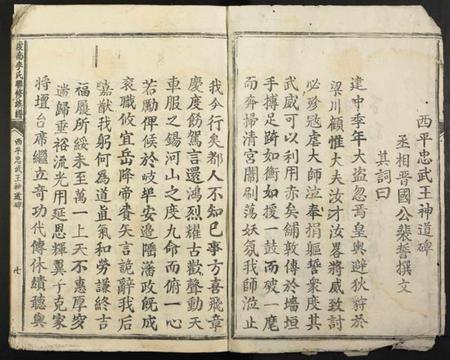 西平忠武王神道碑
丞相晉國公裴晉撰文
其詞曰
建中季年大盜忽焉皇輿避狄豺於
梁川顧惟大夫汝才汝畧將威致討
必殄寇虐大師泣奉捐軀誓衆度其
武威可以利用赤矣鋪敦傳於墻垣
手摶足跡如衝如援一鼓而破一麾
而奔掃清宮闈刷蕩妖氛我師涖止
我今行矣都人不知已事方喜飛章
慶度飭駕言還鴻烈耀古歡聲動天
車服之錫河山之度九命而俯一心
若勵俾候於岐毕安邊陲藩政旣成
袞職攸宜岳降帝賚矢言詭辭我后
嘉猷我躬何爲道直氣和勞謙終吉
福履所綏未至萬一上天不惠厚穸
遄歸垂裕流光用延恩輝翼子克家
將壇台席繼立奇功代傳休績聽輿
西平忠武王神道碑